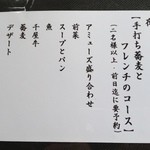 【手打ち蕎麦と
フレンチのコース】
(二名様以上・前日迄に要予約)
アミューズ盛り合わせ
前菜
スープとパン
魚
千屋牛
蕎麦
デザート